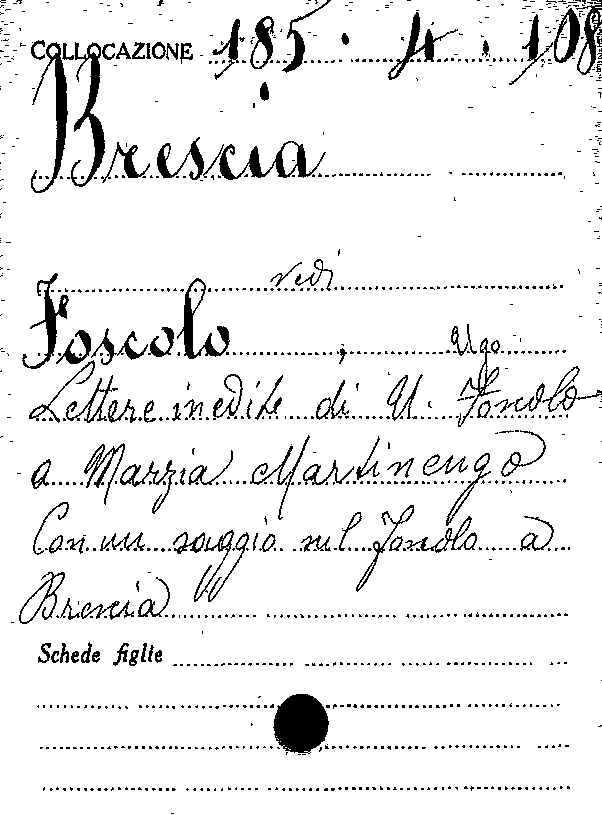 COLLOCAZIONE 185. 4. 108
Brescia
vedi
Foscolo, Ugo
Lettere inedite di U. Foscolo
a Marzia Martinengo
Con un saggio sul Foscolo a
Brescia
Schede figlie